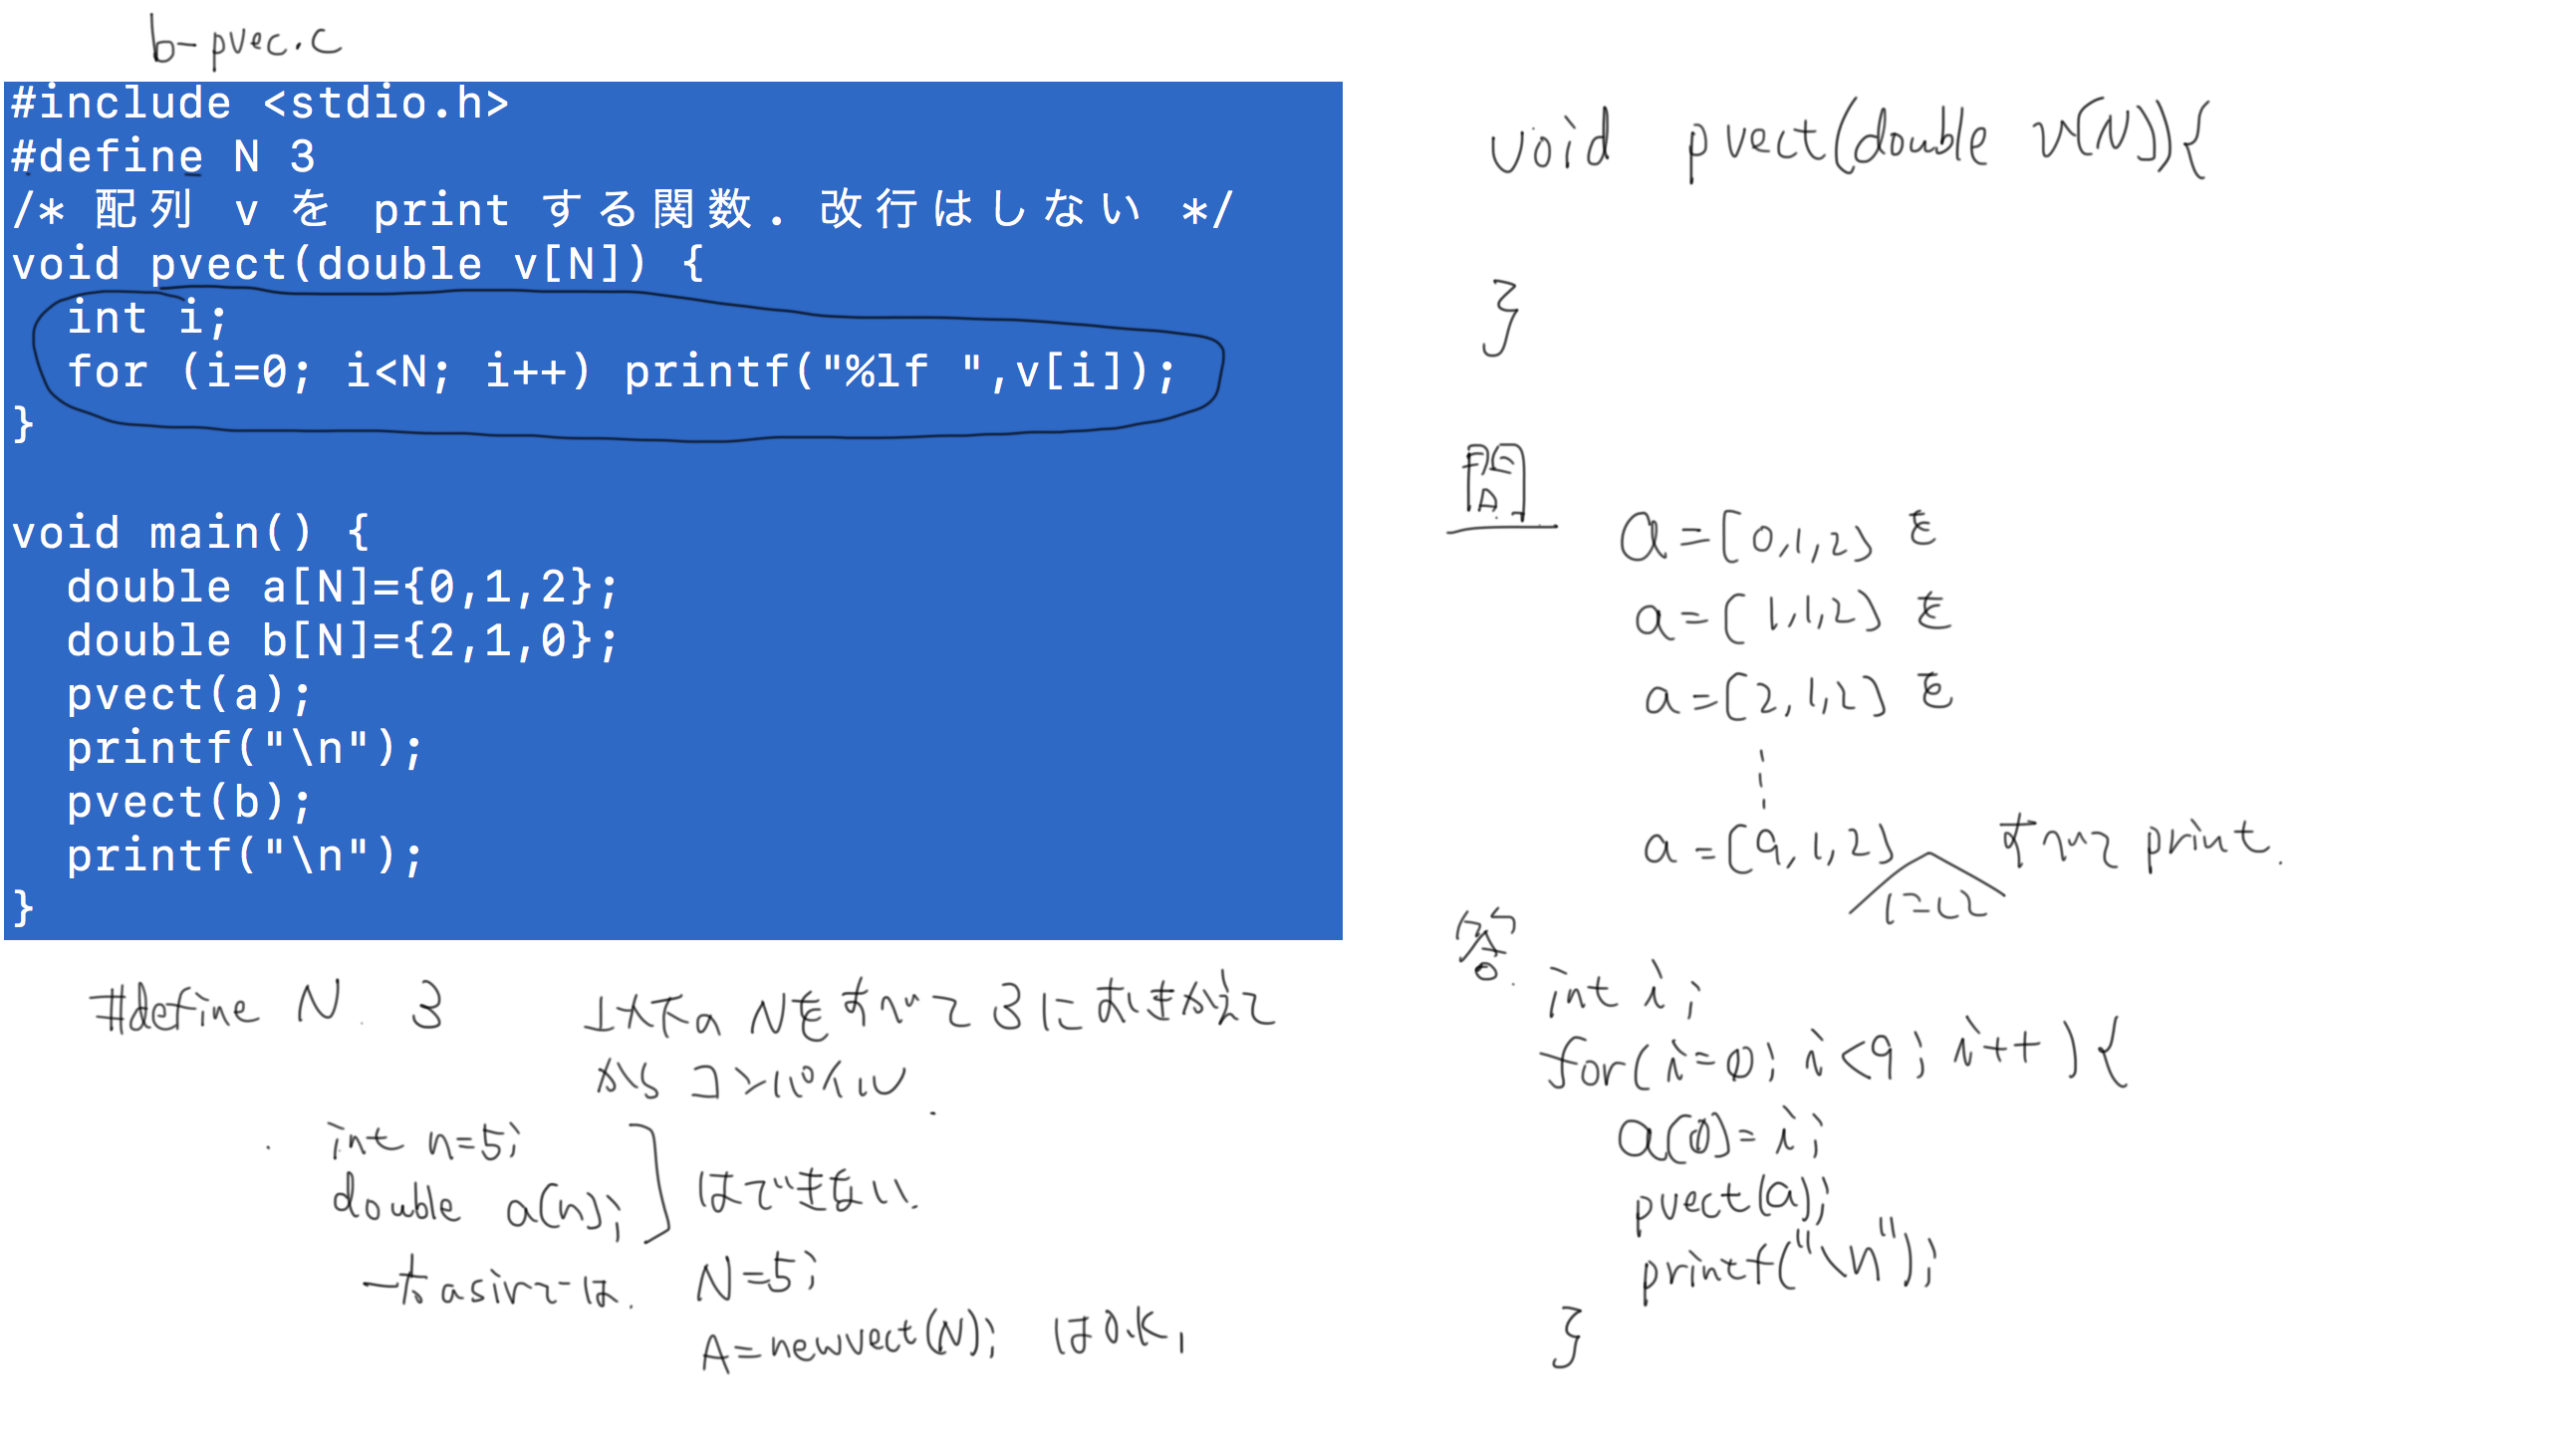 b-pvec.c
#include <stdio.h>
#define N 3
/* 配列 v を print する関数. 改行はしない */
void pvect(double v[N]) {
  int i;
  for (i=0; i<N; i++) printf("%lf ",v[i]);
}
void main() {
  double a[N]={0,1,2};
  double b[N]={2,1,0};
  pvect(a);
  printf("\n");
  pvect(b);
  printf("\n");
}
#define N 3 以下のNをすべて3におきかえて
からコンパイル.
int n=5;
double a[n];
はできない.
一方asirでは.
N=5;
A=newvect(N); はO.K.
void pvect(double v[N]){
}
問
a=[0,1,2] を
a=[1,1,2] を
a=[2,1,2] を
a=[9,1,2] すべてprint.
答.
int i;
for(i=0; i<9; i++){
a[0]=i;
pvect(a);
printf("\n");
}